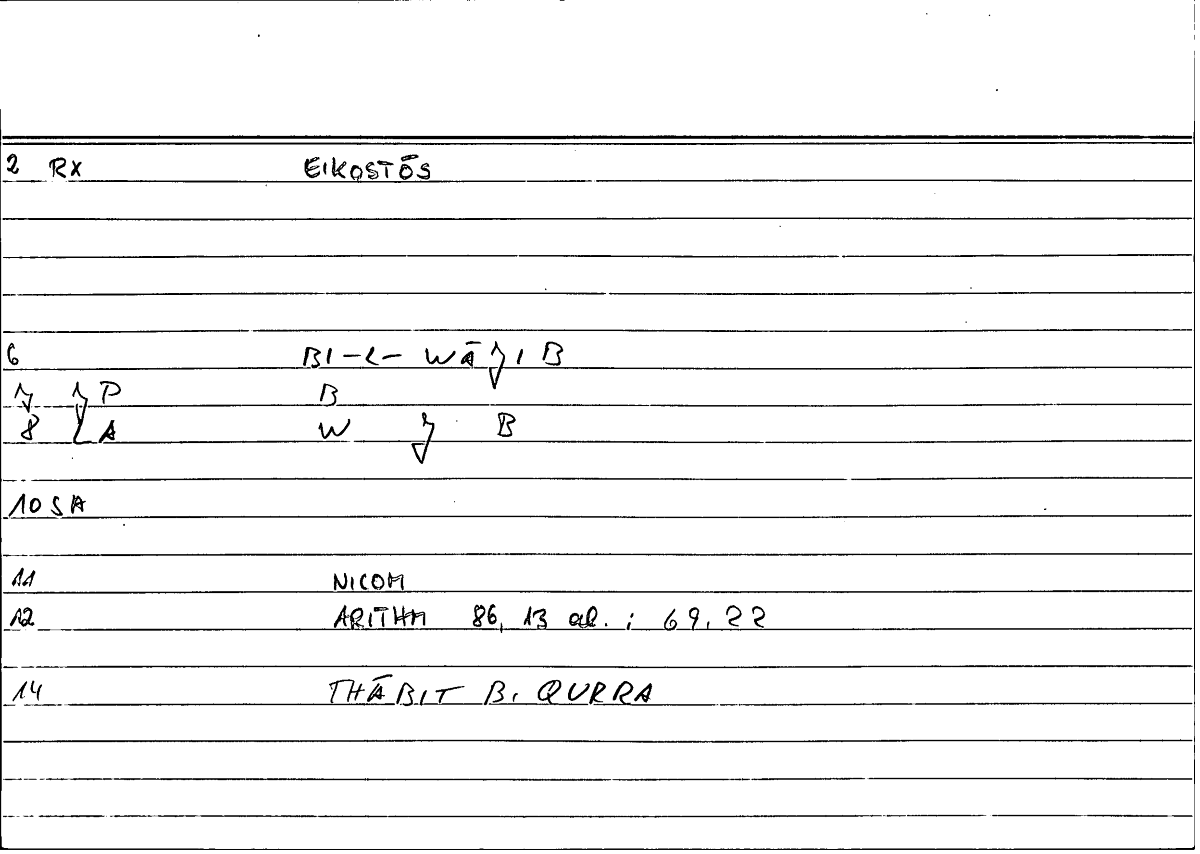 2 RX EIKOSTŌS
6 BI-L- WĀǦIB
7 P B
8 A W Ǧ B
10 SA
11 NICOM
12 ARITHM 86, 13 al. ; 69, 22
14 THĀBIT B. QURRA